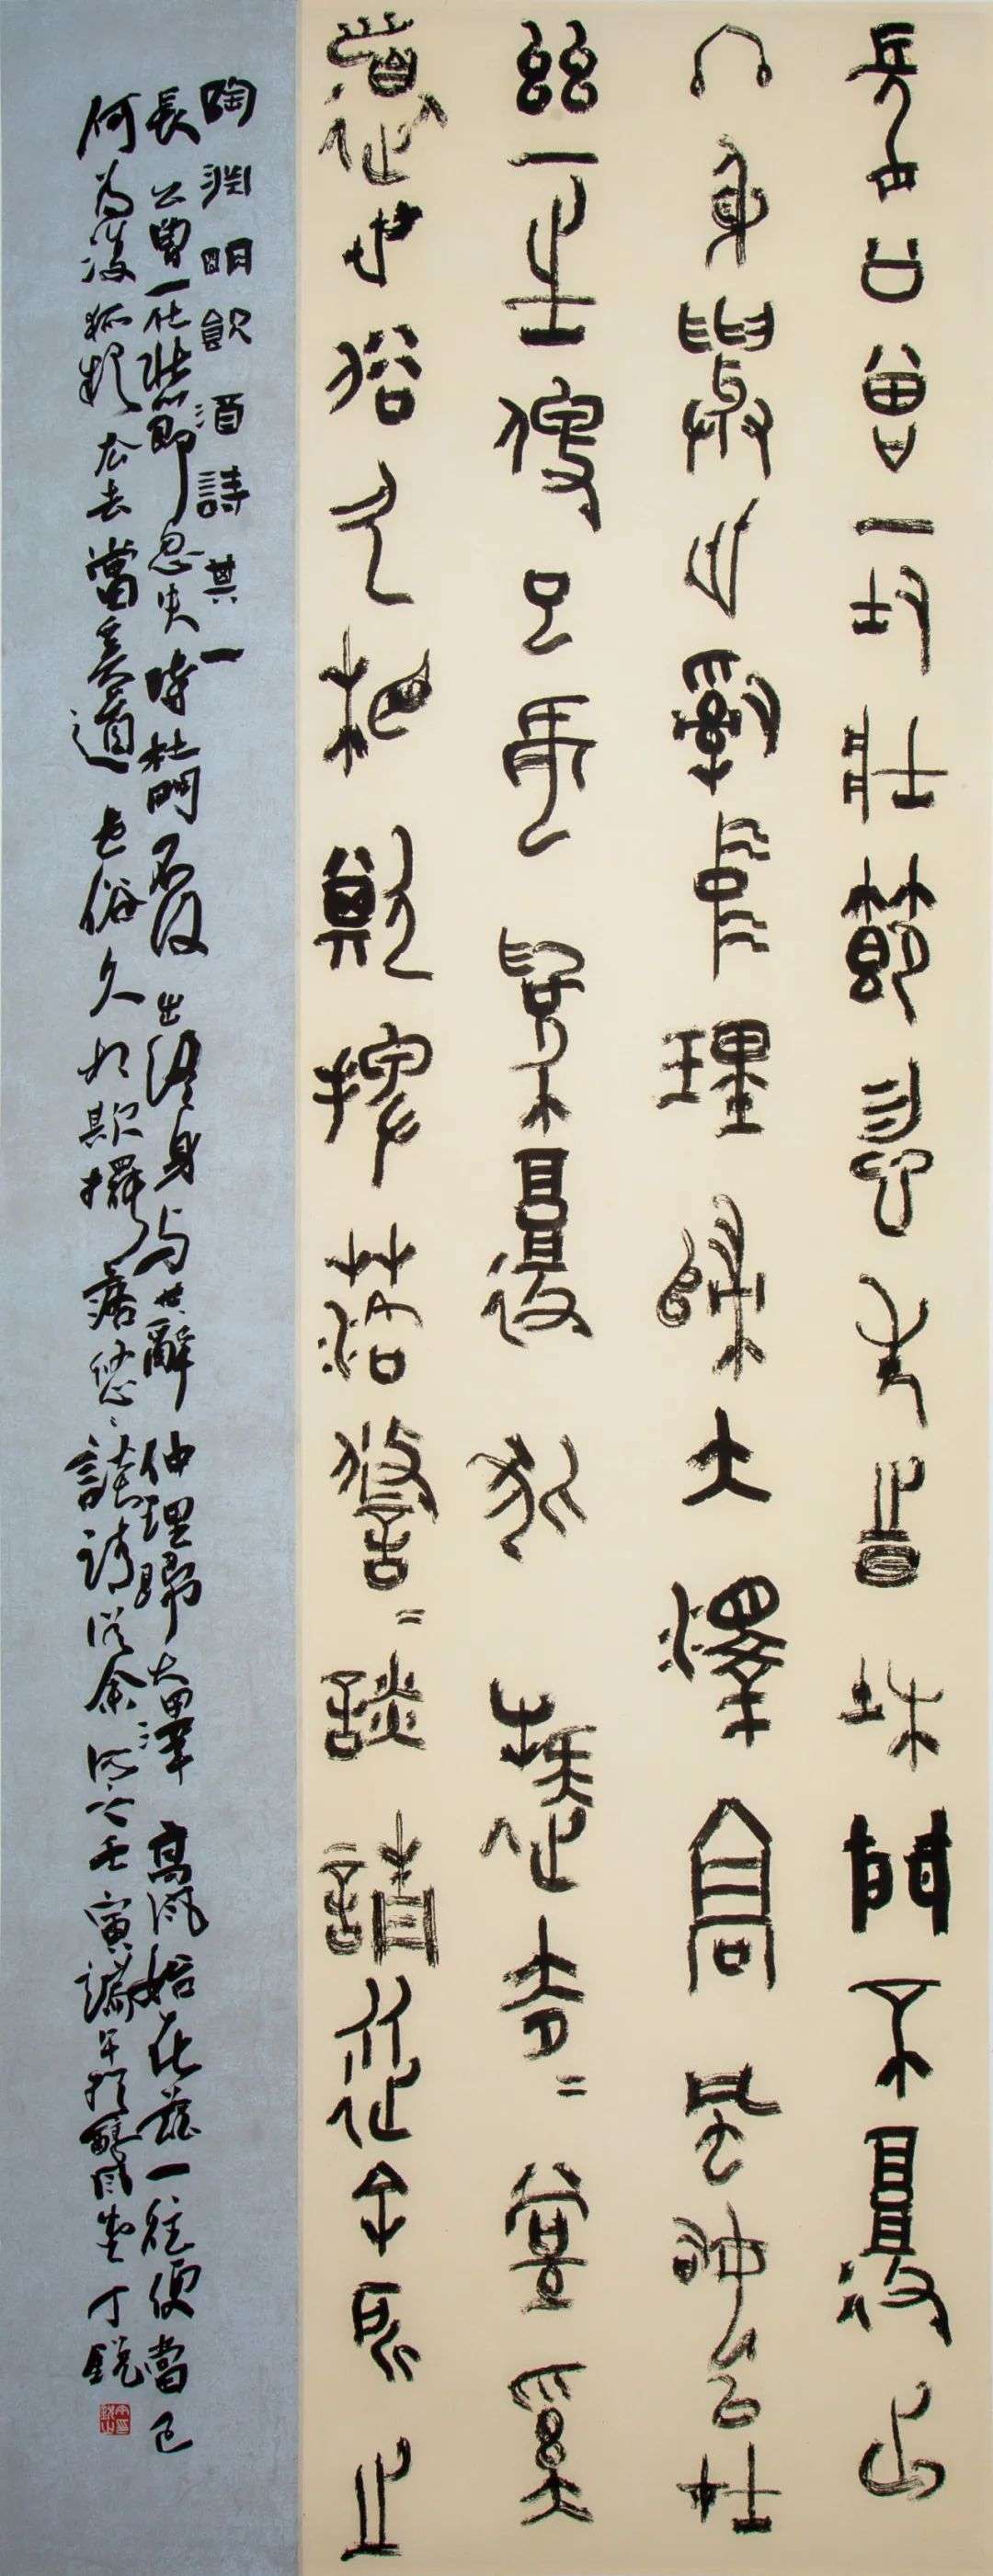 長公曾一仕壯節忽失時杜門不復出
終身與世辭仲理歸大澤高風始在
茲一往便當已何為復狐疑去〻當奚
道世俗久相欺擺落悠〻談請從余所之
陶淵明飲酒詩其一
長公曾一仕壯節忽失時杜門不復出終身与世辭仲理歸大澤高風始在茲一往便當已
何為復狐疑去去當奚道世俗久相欺擺落悠〻談請從余所之壬寅端午於風堂丁銳